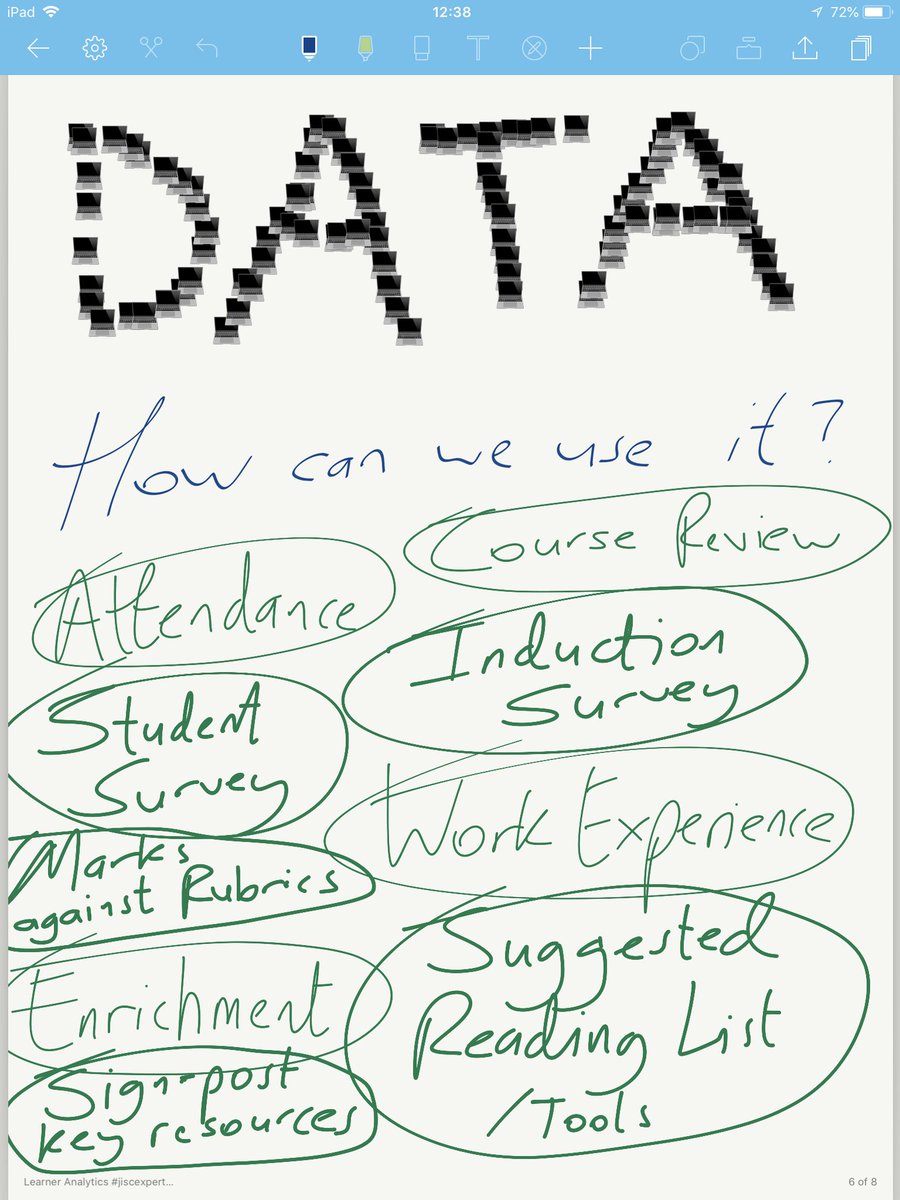 iPad
12:38
72%
DATA
How can we use it?
Course Review
Attendance
Induction
Survey
Student
Survey
Work Experience
Marks
against Rubrics
Suggested
Reading List
/Tools
Enrichment
Sign-post
key resources
Learner Analytics #jiscexpert...
6 of 8